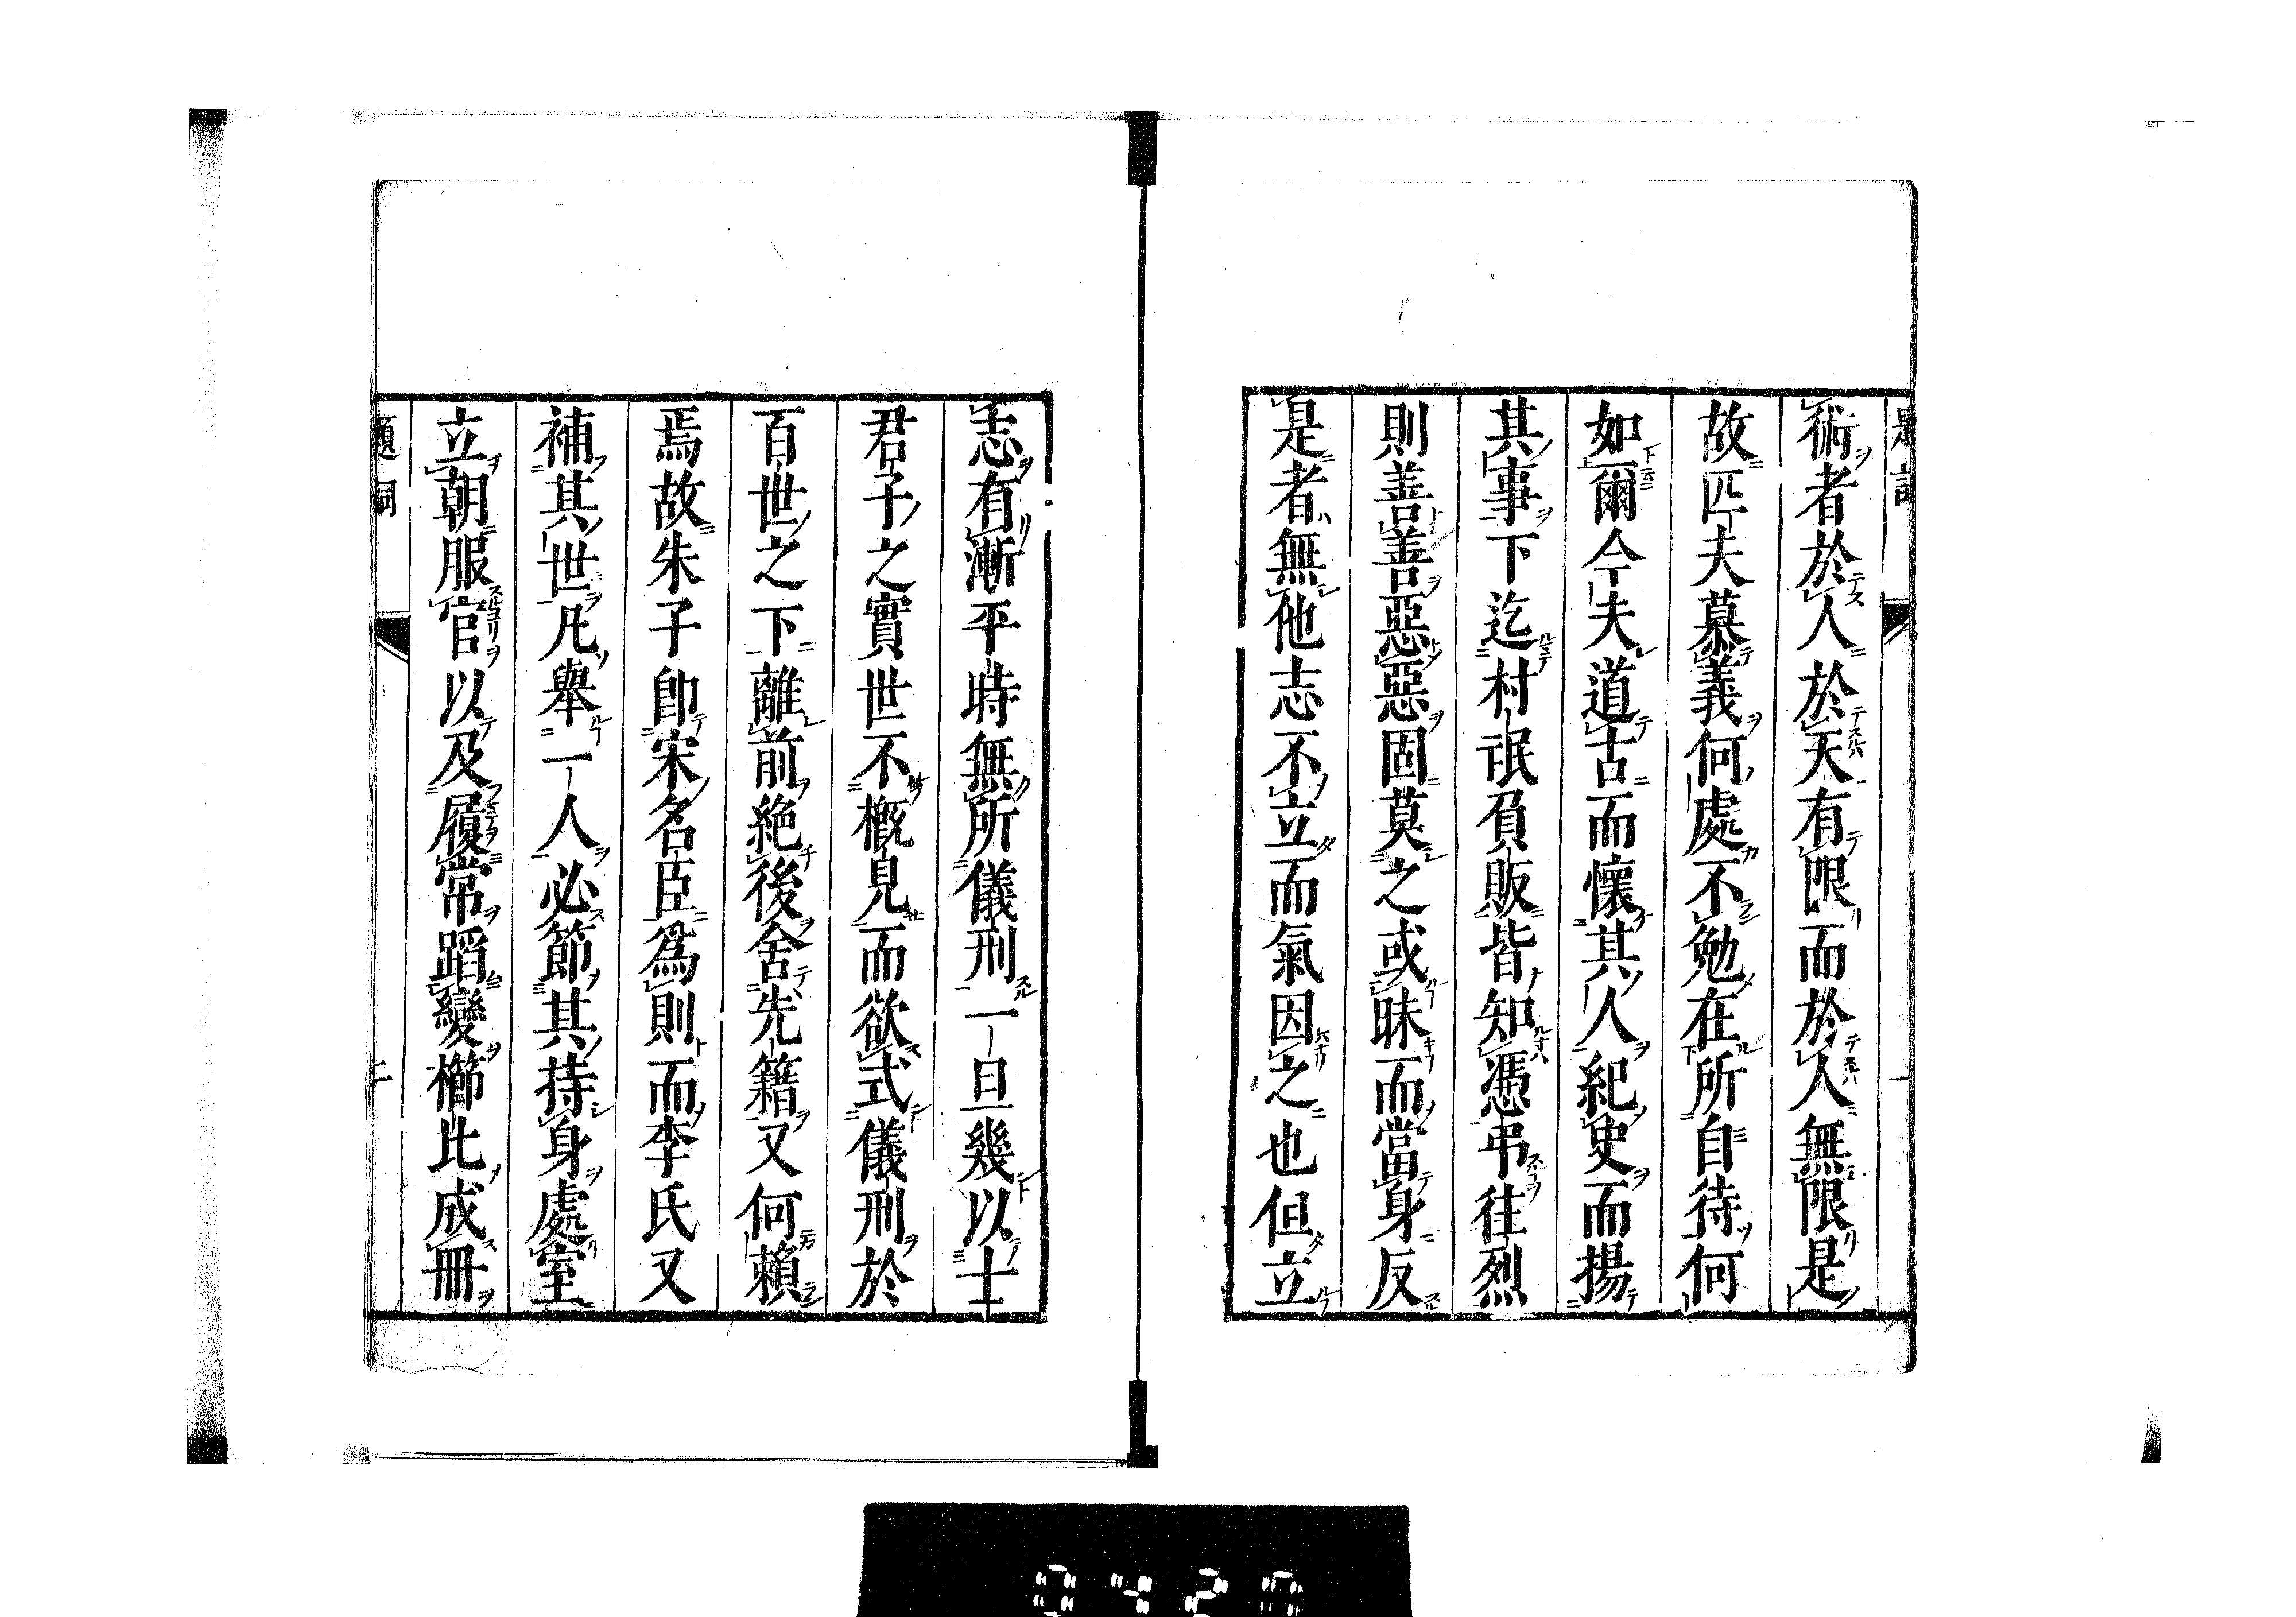 術者於人於天有限而於人無限是
故匹夫慕義何處不勉在所自待何
如爾今夫道古而懷其人紀史而揚
其事下迄村氓負販皆知憑弔往烈
則善善惡惡固莫之或昧而當身反
是者無他志不立而氣因之也但立
志有漸平時無所儀刑一旦幾以士
君子之實世不概見而欲式儀刑於
百世之下離前絶後舍先籍又何賴
焉故朱子卽宋名臣爲則而李氏又
補其世凡舉一人必節其持身處室
立朝服官以及履常蹈變櫛比成冊
題詞
二